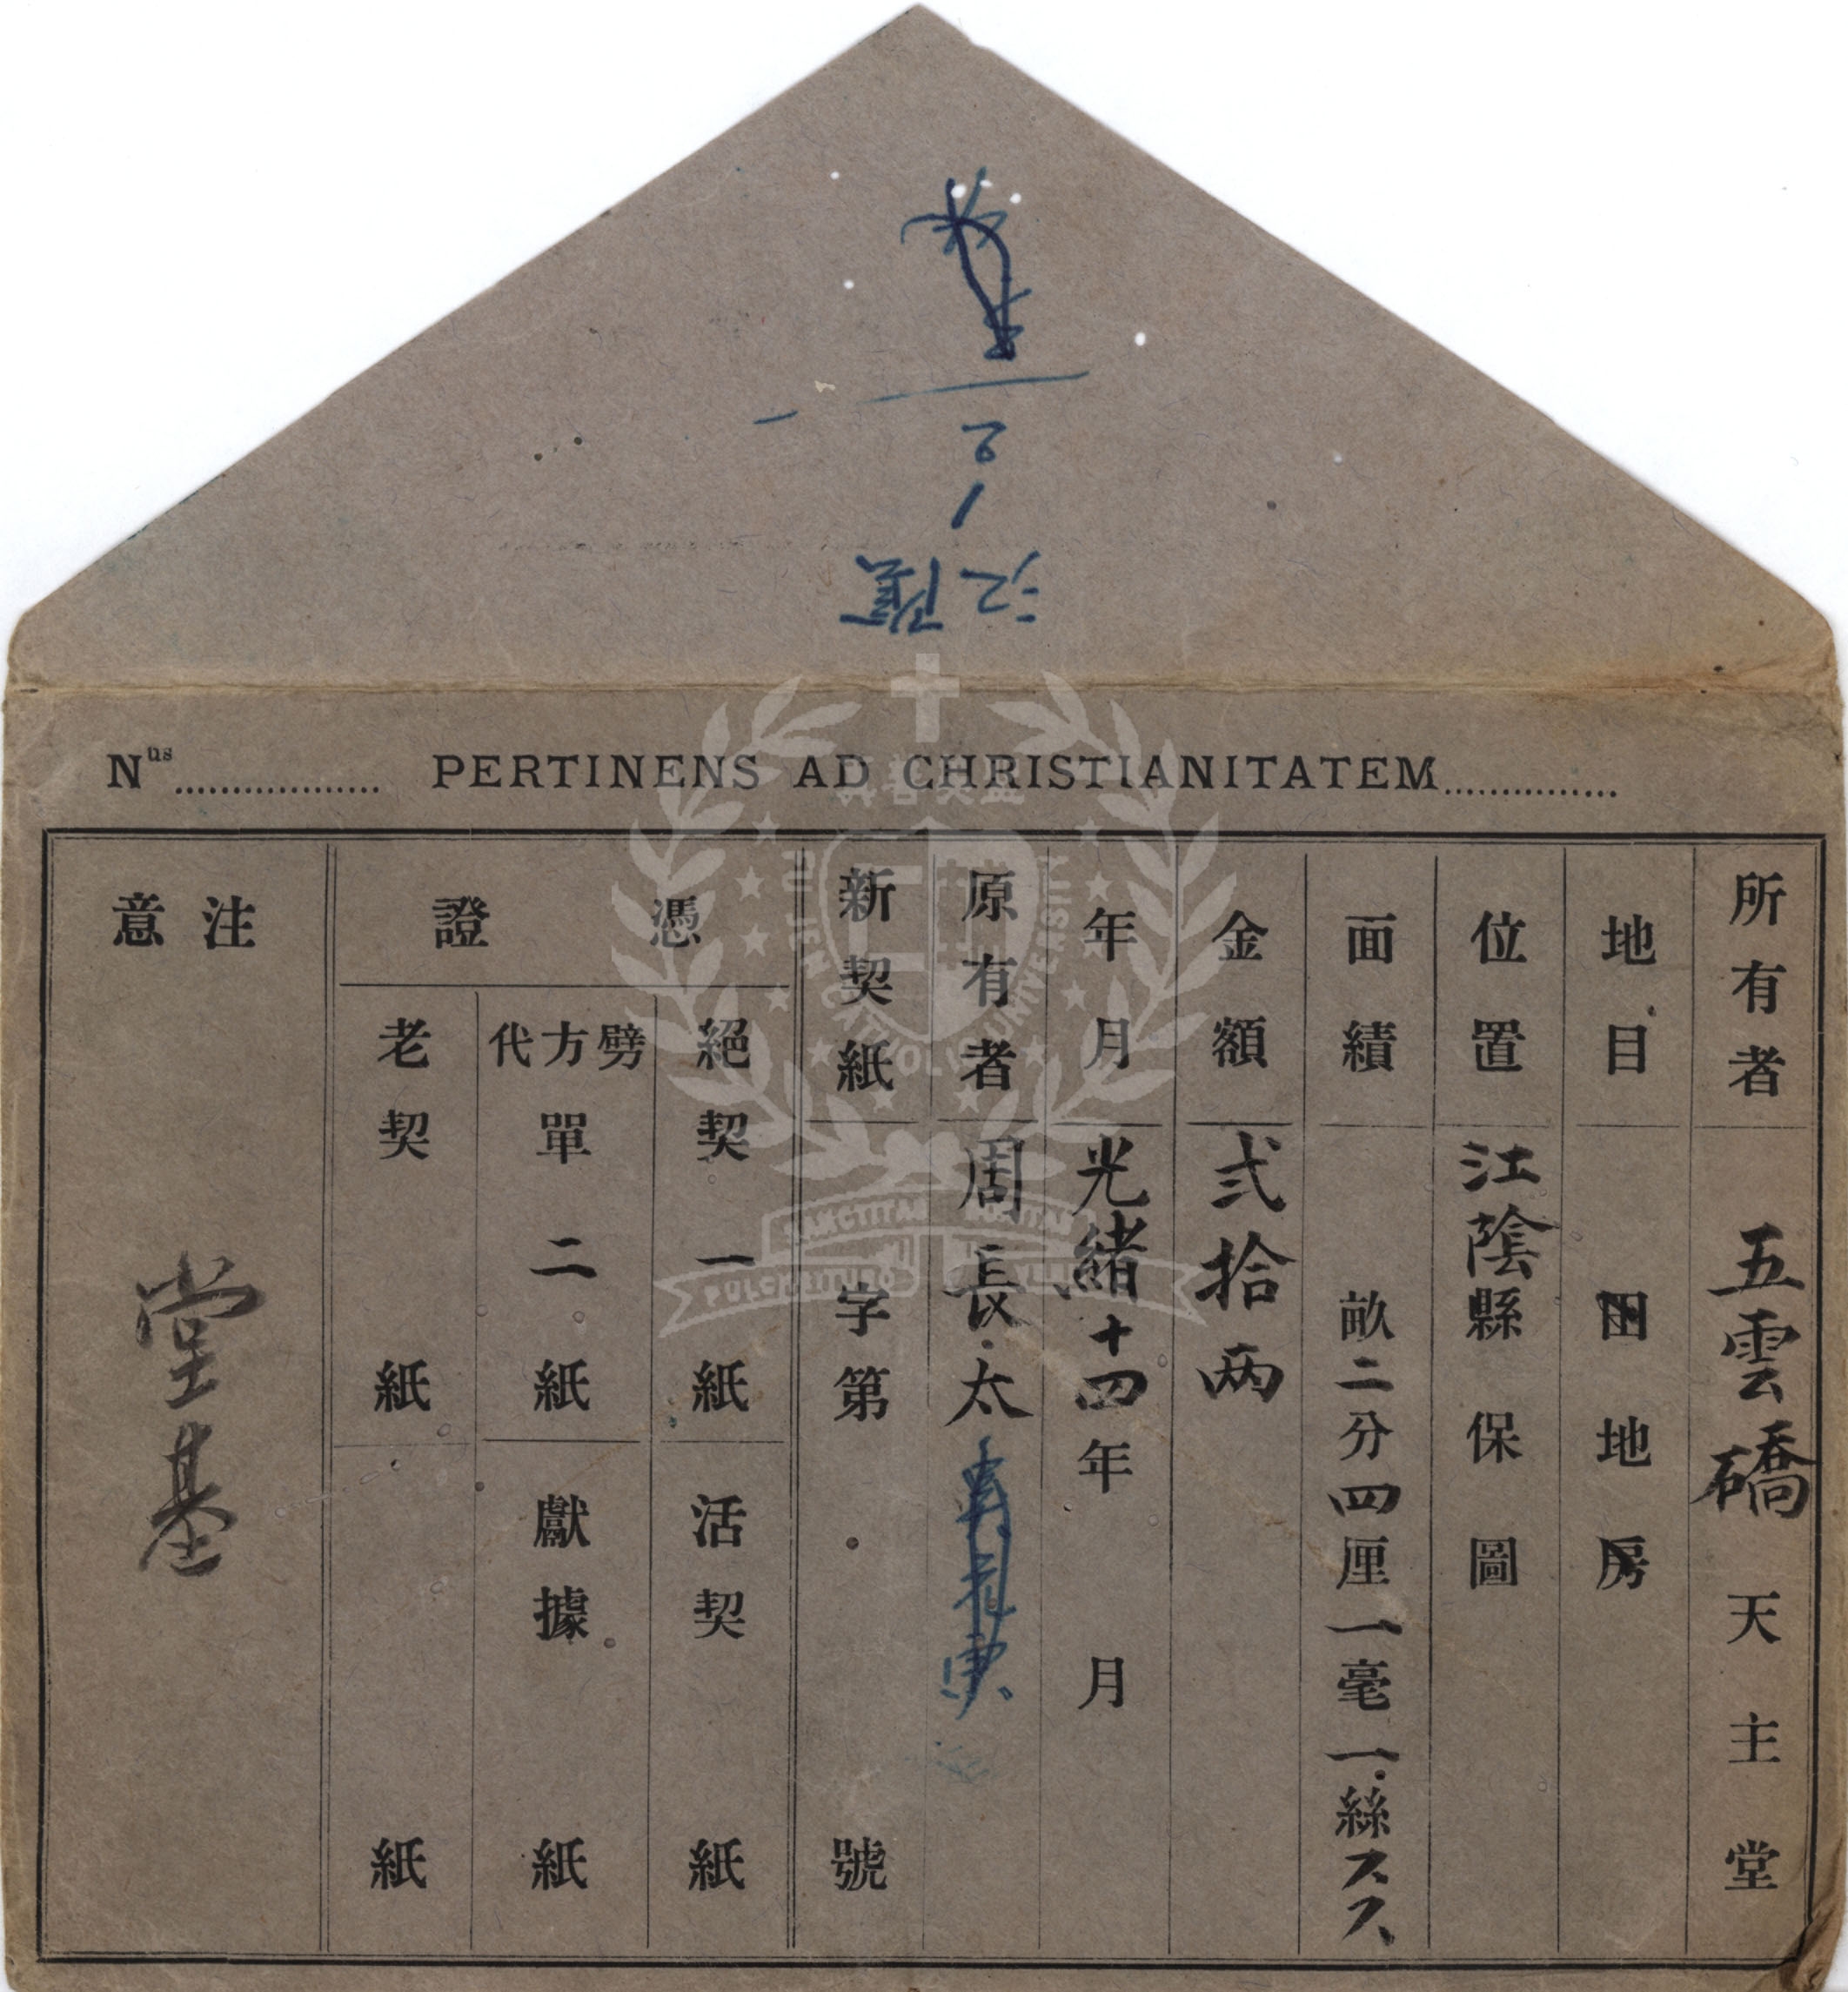 江陰
1
2
Nus.................. PERTINENS AD CHRISTIANITATEM...............
所有者 五雲礄天主堂
地目 田地房
位置 江陰縣 保 圖
面績 畝二分四厘一毫一絲
金額 弍拾两
年月 光緒十四年 月
原有者 周長太
新契紙 字第 號
憑證
絕契一紙 活契 紙
劈方代單二紙 獻據 紙
老契 紙 紙
注意 堂基